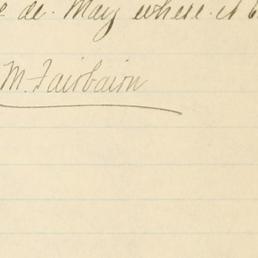 de. May where it
M. Fairbairn